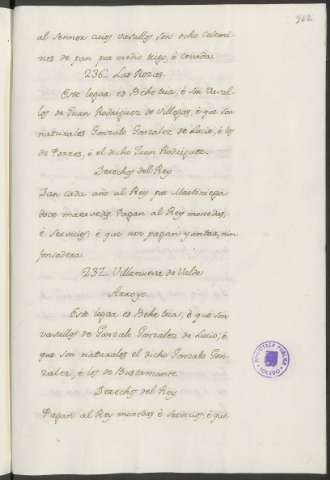 362
al Sennor cuios vasallos son ocho celemi-
nes de pan por medio trigo, è cevada.
236. Las Rozas.
Este logar es Behetria, è son Vasal-
los de Juan Rodriguez de Villegas, è que son
naturales Gonzalo Gonzalez de Lucio, è los
de Porres, è el dicho Juan Rodriguez.
Derechos del Rey
Dan cada año al Rey por Martiniega
doce maravedis. Pagan al Rey monedas,
è servicios; è que non pagan yantar, nin
fonsadera.
237. Villanueva de Valde
Arroyo.
Este logar es Behetria, è que son
vasallos de Gonzalo Gonzalez de Lucio; è
que son naturales el dicho Gonzalo Gon-
zalez, è los de Bustamante.
Derechos del Rey
Pagan al Rey monedas è servicios, è que
BIBLIOTECA PUBLICA
TOLEDO